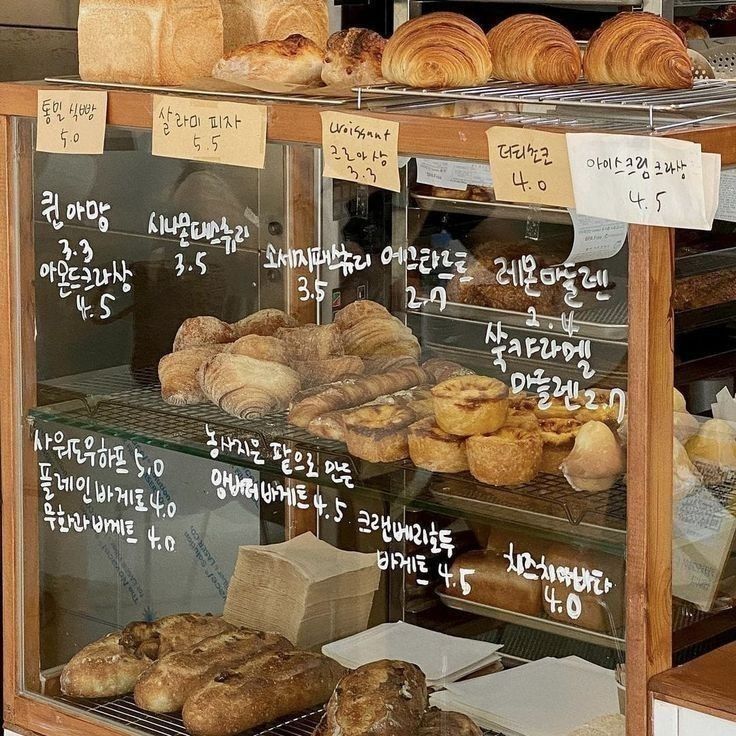 통밀 식빵
5.0
살라미 피자
5.5
Croissant
크로아상
3.3
더티초코
4.0
아이스크림 크라상
4.5
퀸아망
3.3
아몬드크라상
4.5
시나몬패스츄리
3.5
소세지패스츄리
3.5
에그타르트
2.7
레몬마들렌
2.4
쑥카라멜
마들렌 2.7
사워도우하프 5.0
플레인바게트 4.0
무화과바게트
4.0
농사지은 팥으로 만든
앙버터바게트 4.5
크랜베리호두
바게트 4.5
치즈치아바타
4.0